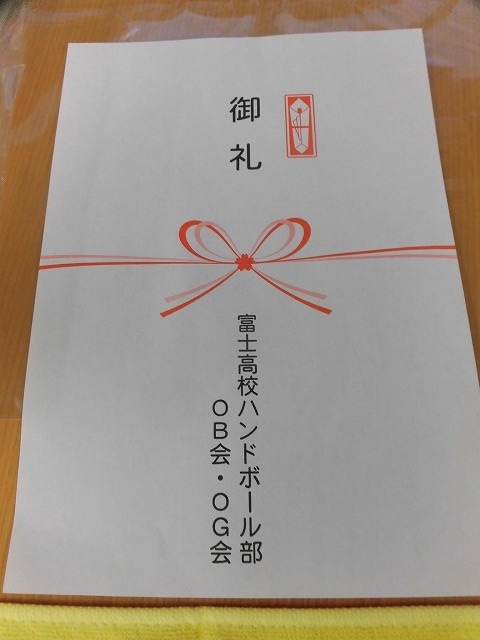 御礼
富士高校ハンドボール部
ＯＢ会・ＯＧ会